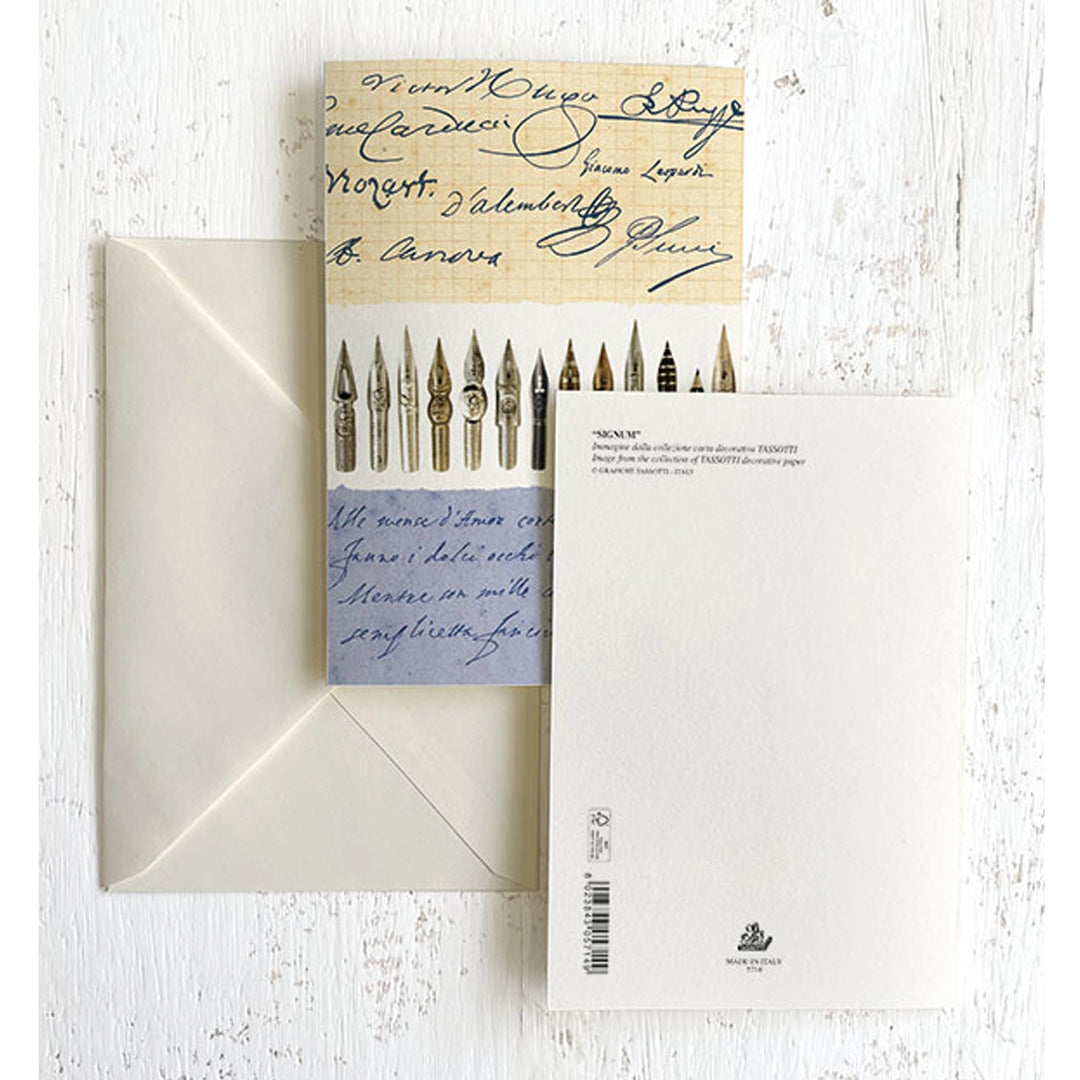 Victor Hugo
Carducci
Giacomo Leopardi
Mozart.
D'alembert
A. Canova
Alle mense d'Amor
Fanno i dolci occhi
Mentre con mille
semplicetta
"SIGNUM"
Immagine dalla collezione carta decorativa TASSOTTI
Image from the collection of TASSOTTI decorative paper
© GRAFICHE TASSOTTI - ITALY
8023843057149
MADE IN ITALY
5714